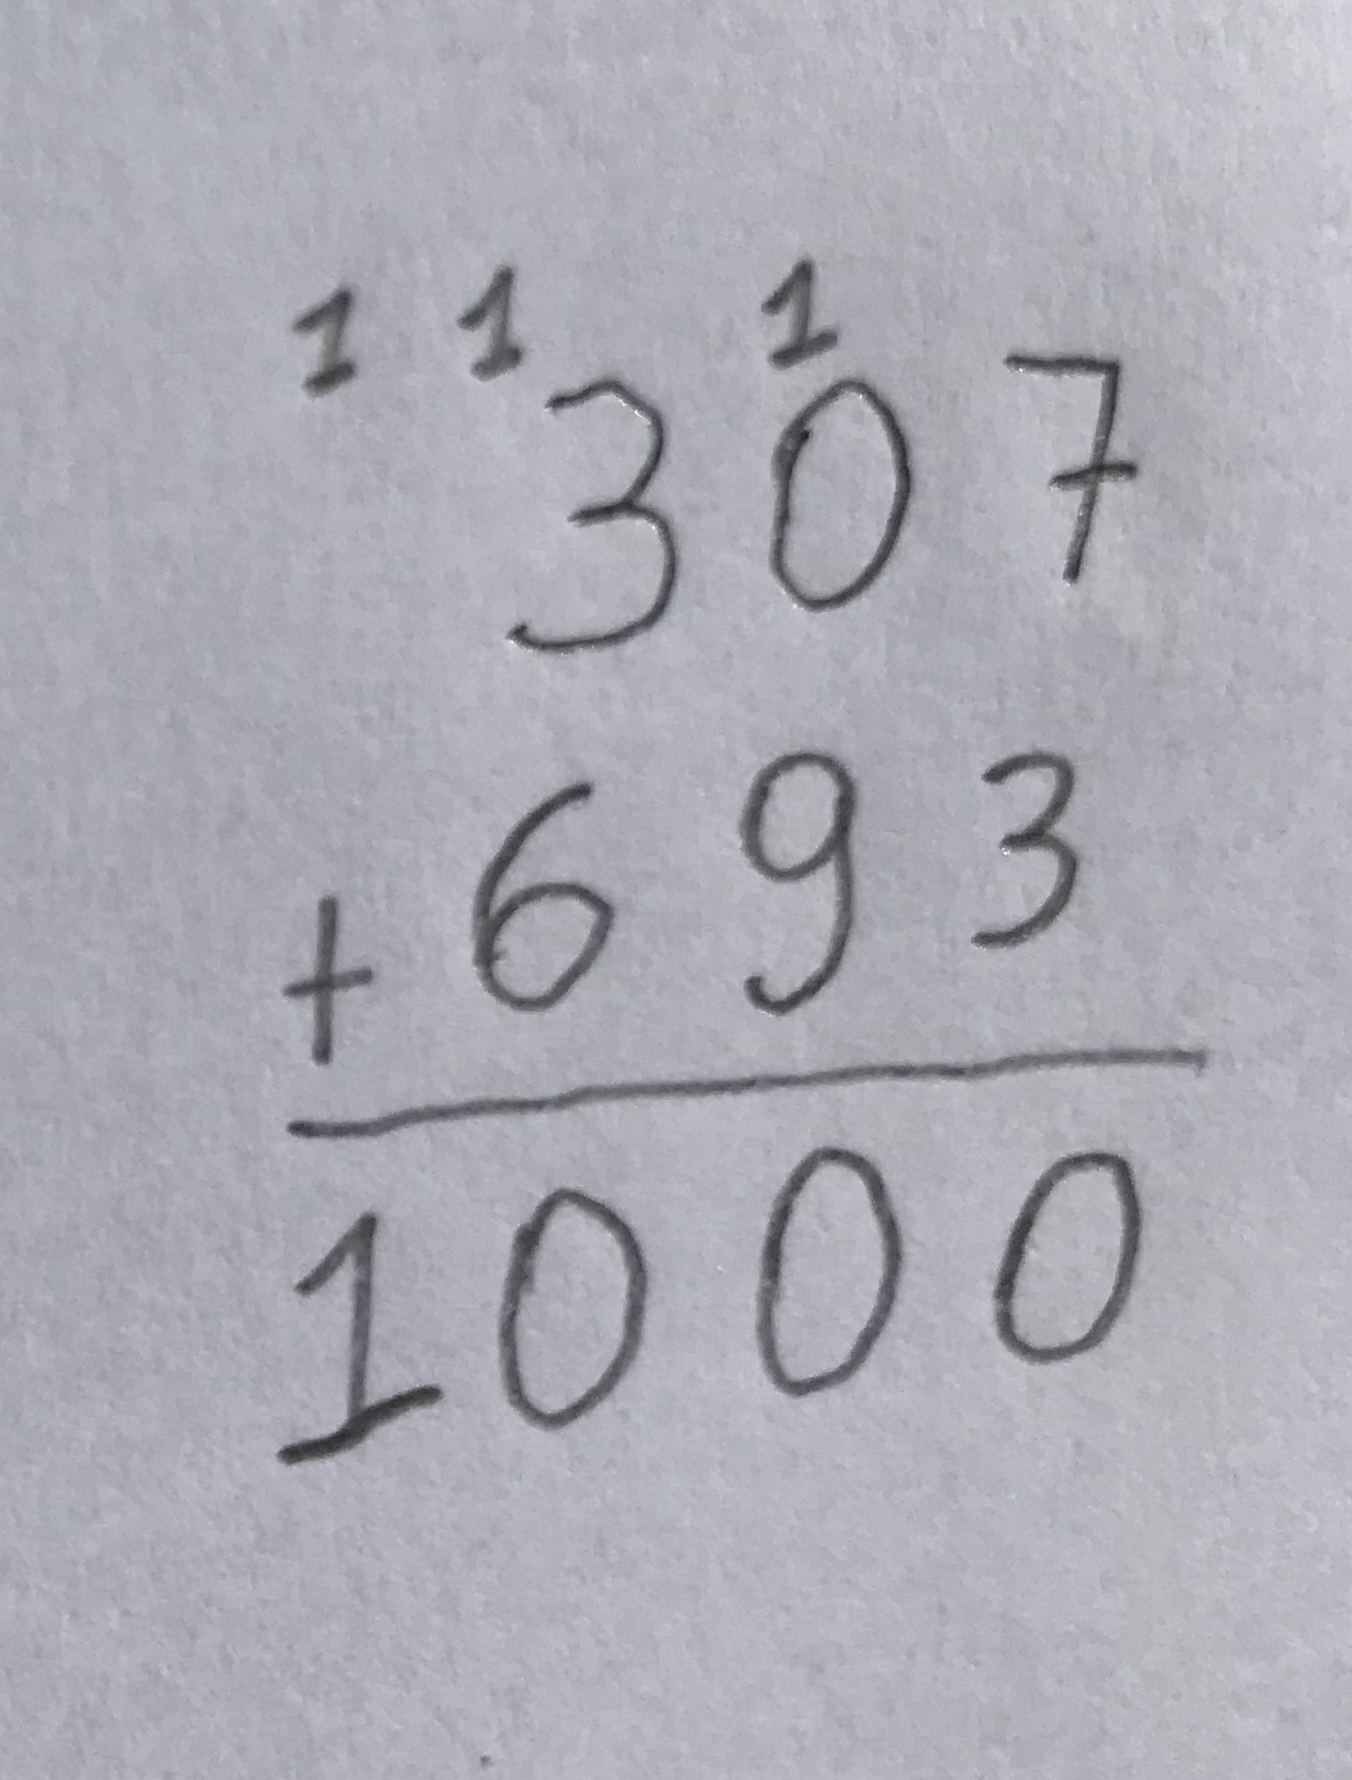 1 1 1
307
+ 693
1000